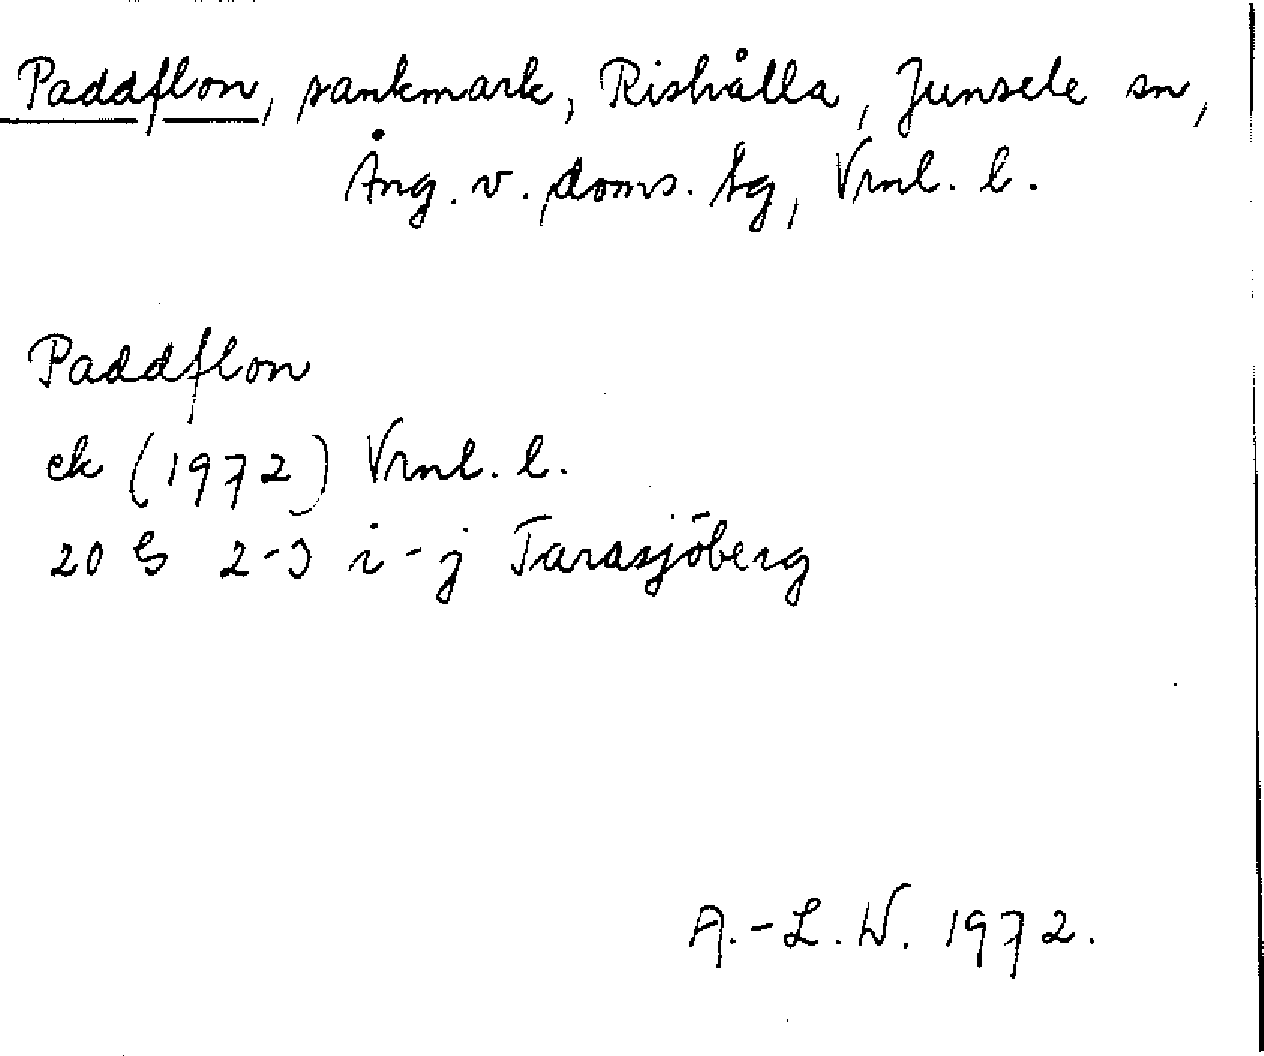 Paddflon, sankmark, Rishålla, Junsele sn,
Ång. v. doms. tg, Vrnl. l.
Paddflon
ek (1972) Vrnl. l.
20 G 2-3 i-j Tarasjöberg
A.-L. W. 1972.